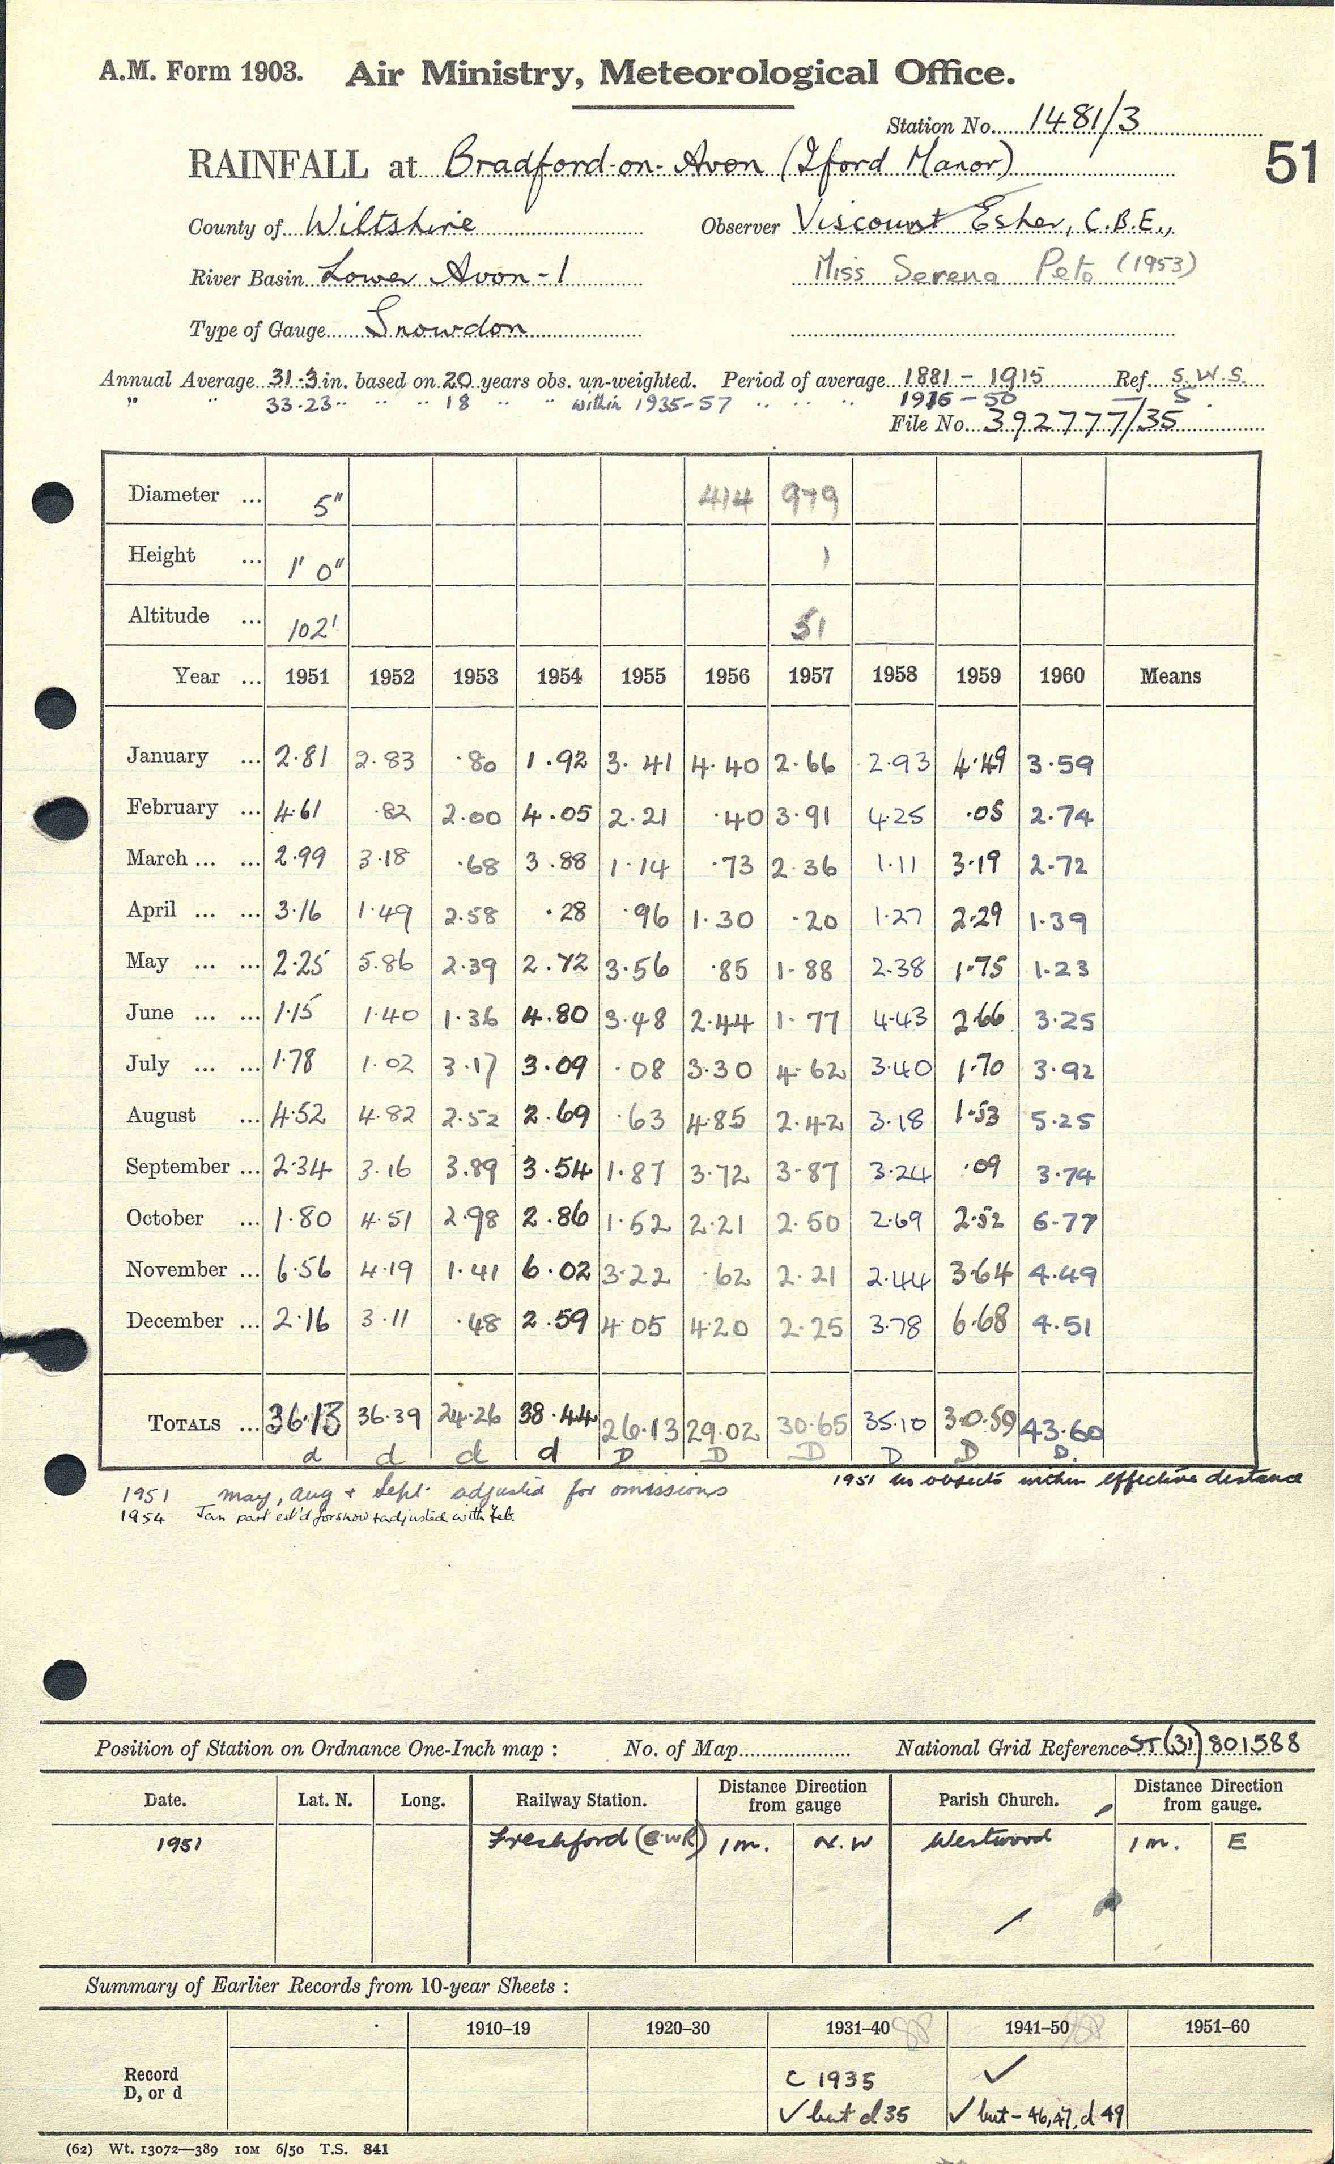 A.M. Form 1903. Air Ministry, Meteorological Office.
Station No. 1481/3
51
RAINFALL at Bradford-on-Avon (Iford Manor)
County of Wiltshire Observer Viscount Esher, C.B.E.,
River Basin Lower Avon-1 Miss Serena Peto (1953)
Type of Gauge Snowdon
Annual Average 31.3 in. based on 20 years obs. un-weighted. Period of average 1881 - 1915 Ref. S.W.S.
" " 33.23 " " " 18 " " " within 1935-57 " " " 1916-50 — S.
File No. 392777/35
Diameter ... 5" 414 979
Height ... 1' 0" 1
Altitude ... 102' 51
Year ... 1951 1952 1953 1954 1955 1956 1957 1958 1959 1960 Means
January ... 2.81 2.83 .80 1.92 3.41 4.40 2.66 2.93 4.49 3.59
February ... 4.61 .82 2.00 4.05 2.21 .40 3.91 4.25 .05 2.74
March ... ... 2.99 3.18 .68 3.88 1.14 .73 2.36 1.11 3.19 2.72
April ... ... 3.16 1.49 2.58 .28 .96 1.30 .20 1.27 2.29 1.39
May ... ... 2.25 5.86 2.39 2.72 3.56 .85 1.88 2.38 1.75 1.23
June ... ... 1.15 1.40 1.36 4.80 3.48 2.44 1.77 4.43 2.66 3.25
July ... ... 1.78 1.02 3.17 3.09 .08 3.30 4.62 3.40 1.70 3.92
August ... 4.52 4.82 2.52 2.69 .63 4.85 2.42 3.18 1.53 5.25
September ... 2.34 3.16 3.89 3.54 1.87 3.72 3.87 3.24 .09 3.74
October ... 1.80 4.51 2.98 2.86 1.52 2.21 2.50 2.69 2.52 6.77
November ... 6.56 4.19 1.41 6.02 3.22 .62 2.21 2.44 3.64 4.49
December ... 2.16 3.11 .48 2.59 4.05 4.20 2.25 3.78 6.68 4.51
TOTALS ... 36.13 36.39 24.26 38.44 26.13 29.02 30.65 35.10 30.59 43.60
d d d d D D D D D D.
1951 no objects within effective distance
1951 May, Aug + Sept. adjusted for omissions
1954 Jan part est'd for snow + adjusted with Feb.
Position of Station on Ordnance One-Inch map : No. of Map National Grid Reference ST(31)801588
Date. Lat. N. Long. Railway Station. Distance from gauge Direction Parish Church. Distance Direction from gauge.
1951 Freshford (G.W.R) 1 m. N.W Westwood 1 m. E
Summary of Earlier Records from 10-year Sheets :
1910–19 1920–30 1931–40 1941–50 1951–60
Record D, or d C 1935 ✓
✓ but d 35 ✓ but - 46,47, d 49
(62) Wt. 13072—389 10M 6/50 T.S. 841